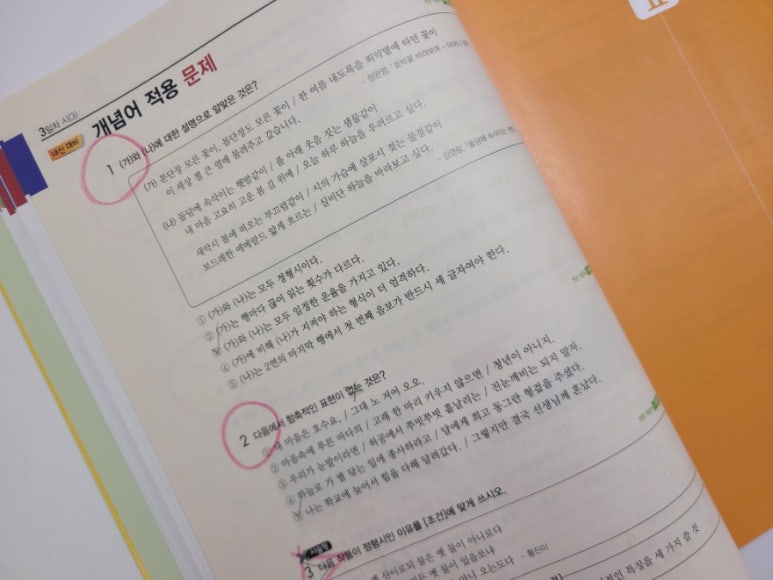 3일차 시(3)
개념어 적용 문제
내신 대비
1 (가)와 (나)에 대한 설명으로 알맞은 것은?
(가) 분단장 모른 꽃이, 몸단장도 모른 꽃이 / 한 여름 내도록을 뙤약볕에 타던 꽃이
이 세상 젤 큰 열매 물려주고 갔습니다.
- 정완영, 「호박꽃 바라보며 - 어머니 생
(나) 돌담에 속삭이는 햇발같이 / 풀 아래 웃음 짓는 샘물같이
내 마음 고요히 고운 봄 길 위에 / 오늘 하루 하늘을 우러르고 싶다.
새악시 볼에 떠오는 부끄럼같이 / 시의 가슴에 살포시 젖는 물결같이
보드레한 에메랄드 얇게 흐르는 / 실비단 하늘을 바라보고 싶다.
- 김영랑, 「돌담에 속삭이는 햇
① (가)와 (나)는 모두 정형시이다.
② (가)는 행마다 끊어 읽는 횟수가 다르다.
(가)와 (나)는 모두 일정한 운율을 가지고 있다.
④ (가)에 비해 (나)가 지켜야 하는 형식이 더 엄격하다.
⑤ (나)는 2연의 마지막 행에서 첫 번째 음보가 반드시 세 글자여야 한다.
2 다음에서 함축적인 표현이 없는 것은?
① 내 마음은 호수요, / 그대 노 저어 오오.
② 마음속에 푸른 바다의 / 고래 한 마리 키우지 않으면 / 청년이 아니지.
③ 우리가 눈발이라면 / 허공에서 쭈빗쭈빗 흩날리는 / 진눈깨비는 되지 말자.
④ 하늘로 가 별 닦는 일에 종사하라고 / 달에게 희고 동그란 헝겊을 주셨다.
나는 학교에 늦어서 힘을 다해 달려갔다. / 그렇지만 결국 선생님께 혼났다.
서술형
3 다음 작품이 정형시인 이유를 [조건]에 맞게 쓰시오.
산이로되 물은 옛 물이 아니로다
옛 물이 있을쏘냐
아니 오는도다 - 황진이
특징을 세 가지 쓸 것